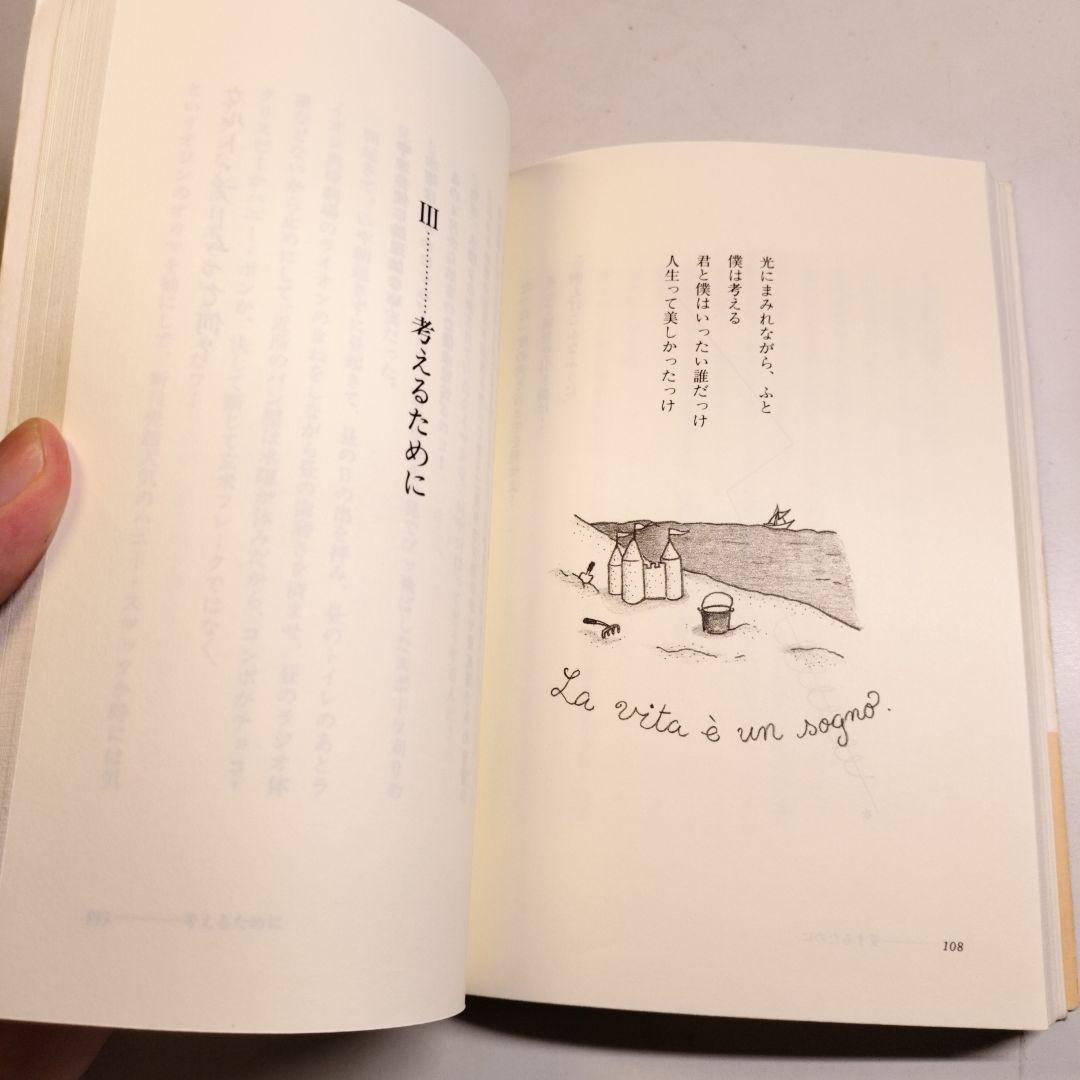 光にまみれながら、ふと
僕は考える
君と僕はいったい誰だっけ
人生って美しかったっけ
La vita è un sogno.
108
III…………考えるために